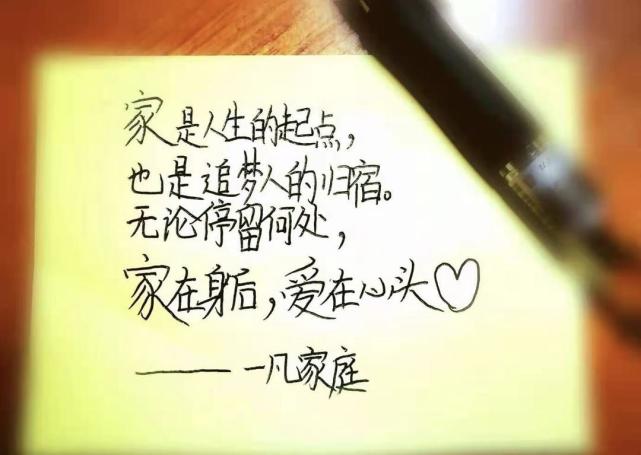 家是人生的起点，
也是追梦人的归宿。
无论停留何处，
家在身后，爱在心头♡
——一凡家庭